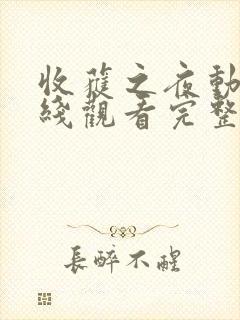 收蓷之夜動
綫觀看完整
長醉不醒